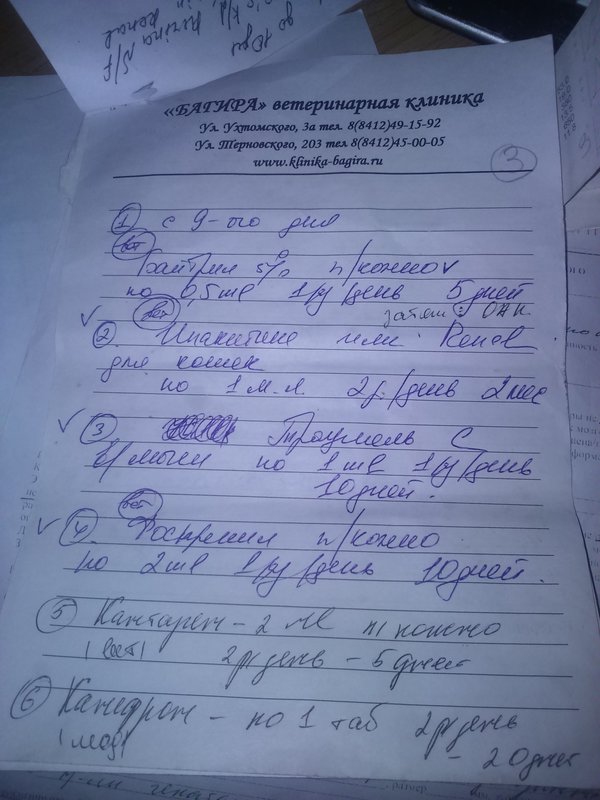 «БАГИРА» ветеринарная клиника
Ул. Ухтомского, 3а тел 8(8412)49-15-92
Ул. Терновского, 203 тел 8(8412)45-00-05
www.klinika-bagira.ru
3
1 с 9-ого дня
вет
Байтрил 5% п/кожно
по 0,5 мл 1 р/день 5 дней
вет затем: ОАК
2 Ипакитине или Renal
для кошек
по 1 м.л. 2 р/день 2 мес
3 Траумель С
в/мышц по 1 мл 1 р/день
10 дней.
вет
4 п/кожно
по 2 мл 1 р/день 10 дней.
5 Кантарен - 2 мл п/кожно
(вет) 2 р день - 5 дней
6 - по 1 таб 2 р день
- 20 дней